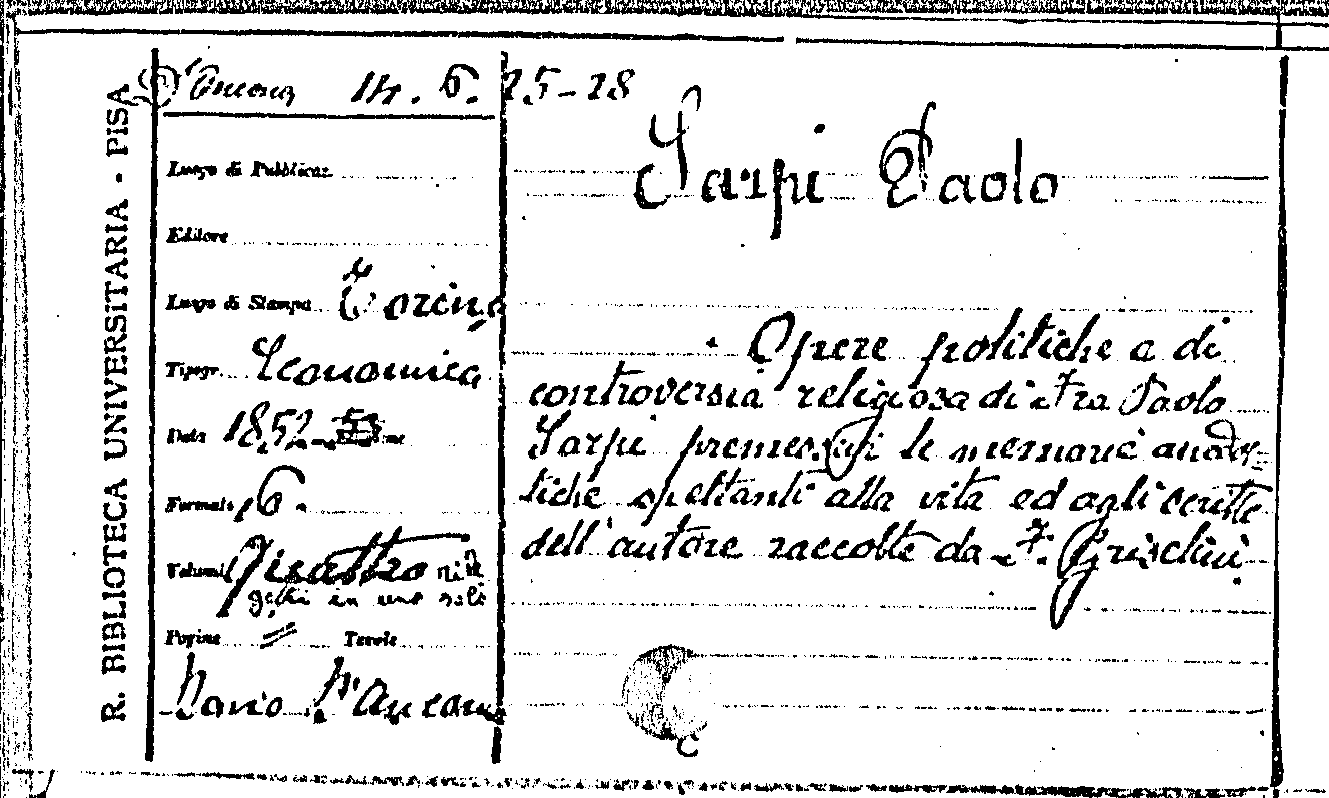 R. BIBLIOTECA UNIVERSITARIA - PISA
D'Ancona 14. 6. 25-28
Luogo di Pubblicaz.
Editore
Luogo di Stampa Torino
Tipogr. Economica
Data 1852
Formato 16.
Volumi Quattro rile
gati in uno solo
Pagine // Tavole
Dono D'Ancona
Sarpi Paolo
Opere politiche e di
controversia religiosa di Fra Paolo
Sarpi premessevi le memorie aneddo=
tiche spettanti alla vita ed agli scritti
dell'autore raccolte da F. Griselini